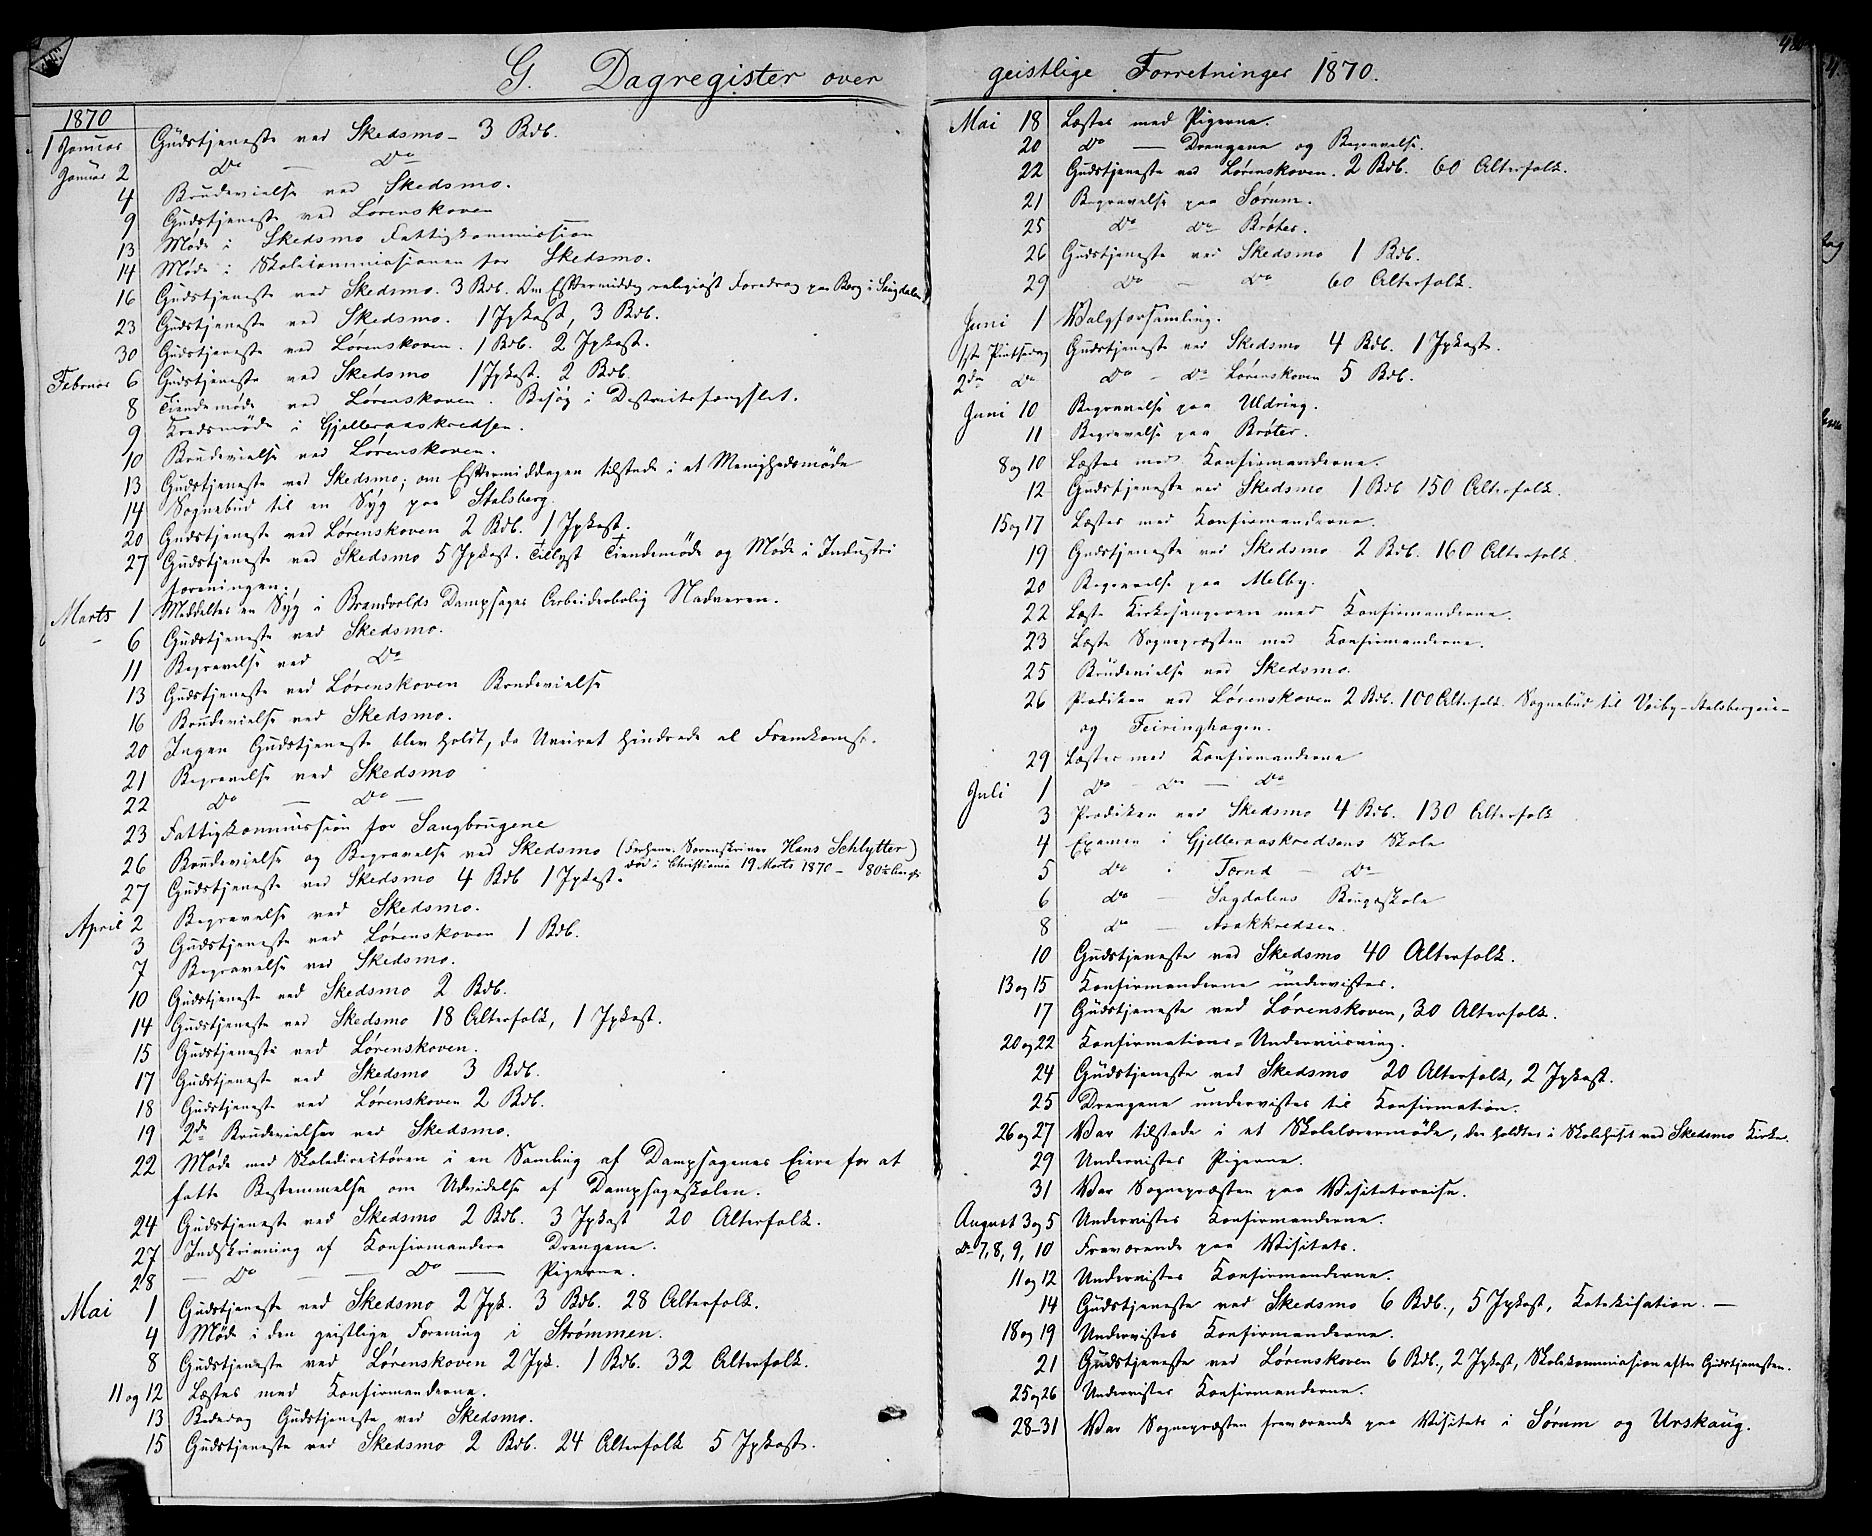 G. Dagregister over geistlige Forretninger 1870.
1870
1 Januar Gudstjeneste ved Skedsmo - 3 Bdb.
Januar 2 Do — Do
4 Brudevielse ved Skedsmo.
9 Gudstjeneste ved Lørenskoven
13 Møde i Skedsmo Fattigkommission
14 Møde i Skolecommissionen for Skedsmo.
16 Gudstjeneste ved Skedsmo. 3 Bdb. Om Eftermiddag religiøst Foredrag paa Berg i Sagdalen
23 Gudstjeneste ved Skedsmo. 1 Jpkast, 3 Bdb.
30 Gudstjeneste ved Lørenskoven. 1 Bdb. 2 Jpkast.
Februar 6 Gudstjeneste ved Skedsmo 1 Jpkast. 2 Bdb.
8 Tiendemøde ved Lørenskoven. Besøg i Distriktsfængslet.
9 Kredsmøde i Gjelleraaskredsen.
10 Brudevielse ved Lørenskoven.
13 Gudstjeneste ved Skedsmo; om Eftermiddagen tilstede i et Menighedsmøde
14 Sognebud til en Syg paa Stalsberg.
20 Gudstjeneste ved Lørenskoven 2 Bdb. 1 Jpkast.
27 Gudstjeneste ved Skedsmo 5 Jpkast. Tillyst Tiendemøde og Møde i Industri
foreningen.
Marts 1 Meddeltes en Syg i Brandvolds Dampsages Arbeiderbolig Nadveren.
- 6 Gudstjeneste ved Skedsmo.
11 Begravelse ved Do
13 Gudstjeneste ved Lørenskoven Brudevielse
16 Brudevielse ved Skedsmo.
20 Ingen Gudstjeneste blev holdt, da Uveiret hindrede al Fremkomst.
21 Begravelse ved Skedsmo
22 Do — Do —
23 Fattigkommission for Saugbrugene
26 Brudevielse og Begravelse ved Skedsmo (Forhenv. Sorenskriver Hans Schlytter)
død i Christiania 19 Marts 1870 - 80
27 Gudstjeneste ved Skedsmo 4 Bdb 1 Jpkast.
April 2 Begravelse ved Skedsmo.
3 Gudstjeneste ved Lørenskoven 1 Bdb.
7 Begravelse ved Skedsmo.
10 Gudstjeneste ved Skedsmo 2 Bdb.
14 Gudstjeneste ved Skedsmo 18 Alterfolk, 1 Jpkast.
15 Gudstjeneste ved Lørenskoven.
17 Gudstjeneste ved Skedsmo 3 Bdb.
18 Gudstjeneste ved Lørenskoven 2 Bdb.
19 2de Brudevielser ved Skedsmo.
22 Møde med Skoledirektøren i en Samling af Dampsagenes Eiere for at
fatte Bestemmelse om Udvidelse af Dampsagskolen.
24 Gudstjeneste ved Skedsmo 2 Bdb. 3 Jpkast 20 Alterfolk.
27 Indskrivning af Konfirmandere Drengene.
28 — Do — Do — Pigerne.
Mai 1 Gudstjeneste ved Skedsmo 2 Jpk. 3 Bdb. 28 Alterfolk.
4 Møde i den geistlige Forening i Strømmen.
8 Gudstjeneste ved Lørenskoven 2 Jpk. 1 Bdb. 32 Alterfolk.
11 og 12 Læstes med Konfirmanderne.
13 Bededag Gudstjeneste ved Skedsmo.
15 Gudstjeneste ved Skedsmo 2 Bdb. 24 Alterfolk 5 Jpkast.
Mai 18 Læstes med Pigerne.
20 Do — Drengene og Begravelse.
22 Gudstjeneste ved Lørenskoven. 2 Bdb. 60 Alterfolk.
21 Begravelse paa Sørum.
25 Do Do Brøter.
26 Gudstjeneste ved Skedsmo 1 Bdb.
29 Do - Do 60 Alterfolk.
Juni 1 Valgforsamling.
1ste Pintsedag Gudstjeneste ved Skedsmo 4 Bdb. 1 Jpkast.
2den Do Do - Do Lørenskoven 5 Bdb.
Juni 10 Begravelse paa Uldring.
11 Begravelse paa Brøter.
8 og 10 Læstes med Konfirmanderne.
12 Gudstjeneste ved Skedsmo 1 Bdb 150 Alterfolk.
15 og 17 Læstes med Konfirmanderne.
19 Gudstjeneste ved Skedsmo 2 Bdb. 160 Alterfolk.
20 Begravelse paa Melby.
22 Læste Kirkesangeren med Konfirmanderne.
23 Læste Sognepræsten med Konfirmanderne.
25 Brudevielse ved Skedsmo.
26 Prædiken ved Lørenskoven 2 Bdb. 100 Alterfolk. Sognebud til Vaiby-Stalsbergeie-
og Feiringhagen.
29 Læstes med Konfirmanderne
Juli 1 Do - Do — Do
3 Prædiken ved Skedsmo 4 Bdb. 130 Alterfolk
4 Examen i Gjelleraaskredsens Skole
5 Do i Tornd — Do
6 Do — Sagdalens Brugsskole
8 Do — Asakkredsen.
10 Gudstjeneste ved Skedsmo 40 Alterfolk.
13 og 15 Konfirmanderne undervistes.
17 Gudstjeneste ved Lørenskoven, 30 Alterfolk.
20 og 22 Konfirmations-Underviisning.
24 Gudstjeneste ved Skedsmo 20 Alterfolk, 2 Jpkast.
25 Drengene undervistes til Konfirmation.
26 og 27 Var tilstede i et Skolelærermøde, der holdtes i Skolehuset ved Skedsmo Kirke.
29 Undervistes Pigerne.
31 Var Sognepræsten paa Visitatsreise.
August 3 og 5 Undervistes Konfirmanderne.
Do 7, 8, 9, 10 Fraværende paa Visitats.
11 og 12 Undervistes Konfirmanderne.
14 Gudstjeneste ved Skedsmo 6 Bdb., 5 Jpkast, Katekisation. —
18 og 19 Undervistes Konfirmanderne.
21 Gudstjeneste ved Lørenskoven 6 Bdb., 2 Jpkast, Skolekommission efter Gudstjenesten.
25 og 26 Undervistes Konfirmanderne.
28-31 Var Sognepræsten fraværende paa Visitats i Sørum og Urskaug.